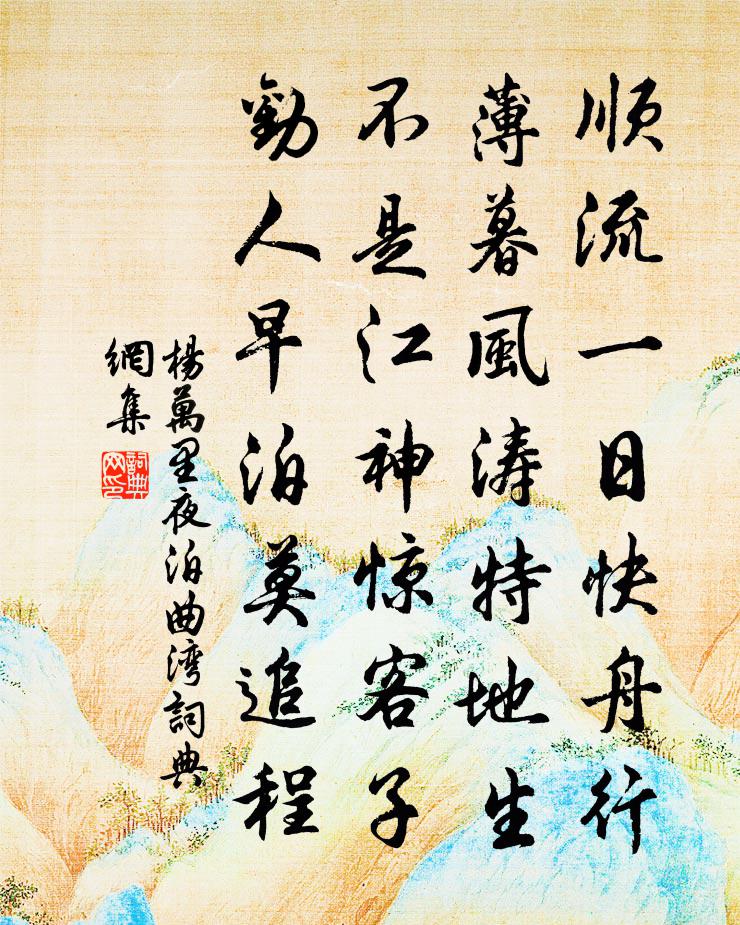 顺流一日快舟行
薄暮風涛特地生
不是江神惊客子
勸人早泊莫追程
楊萬里夜泊曲湾詞典
網集
詞典
网印